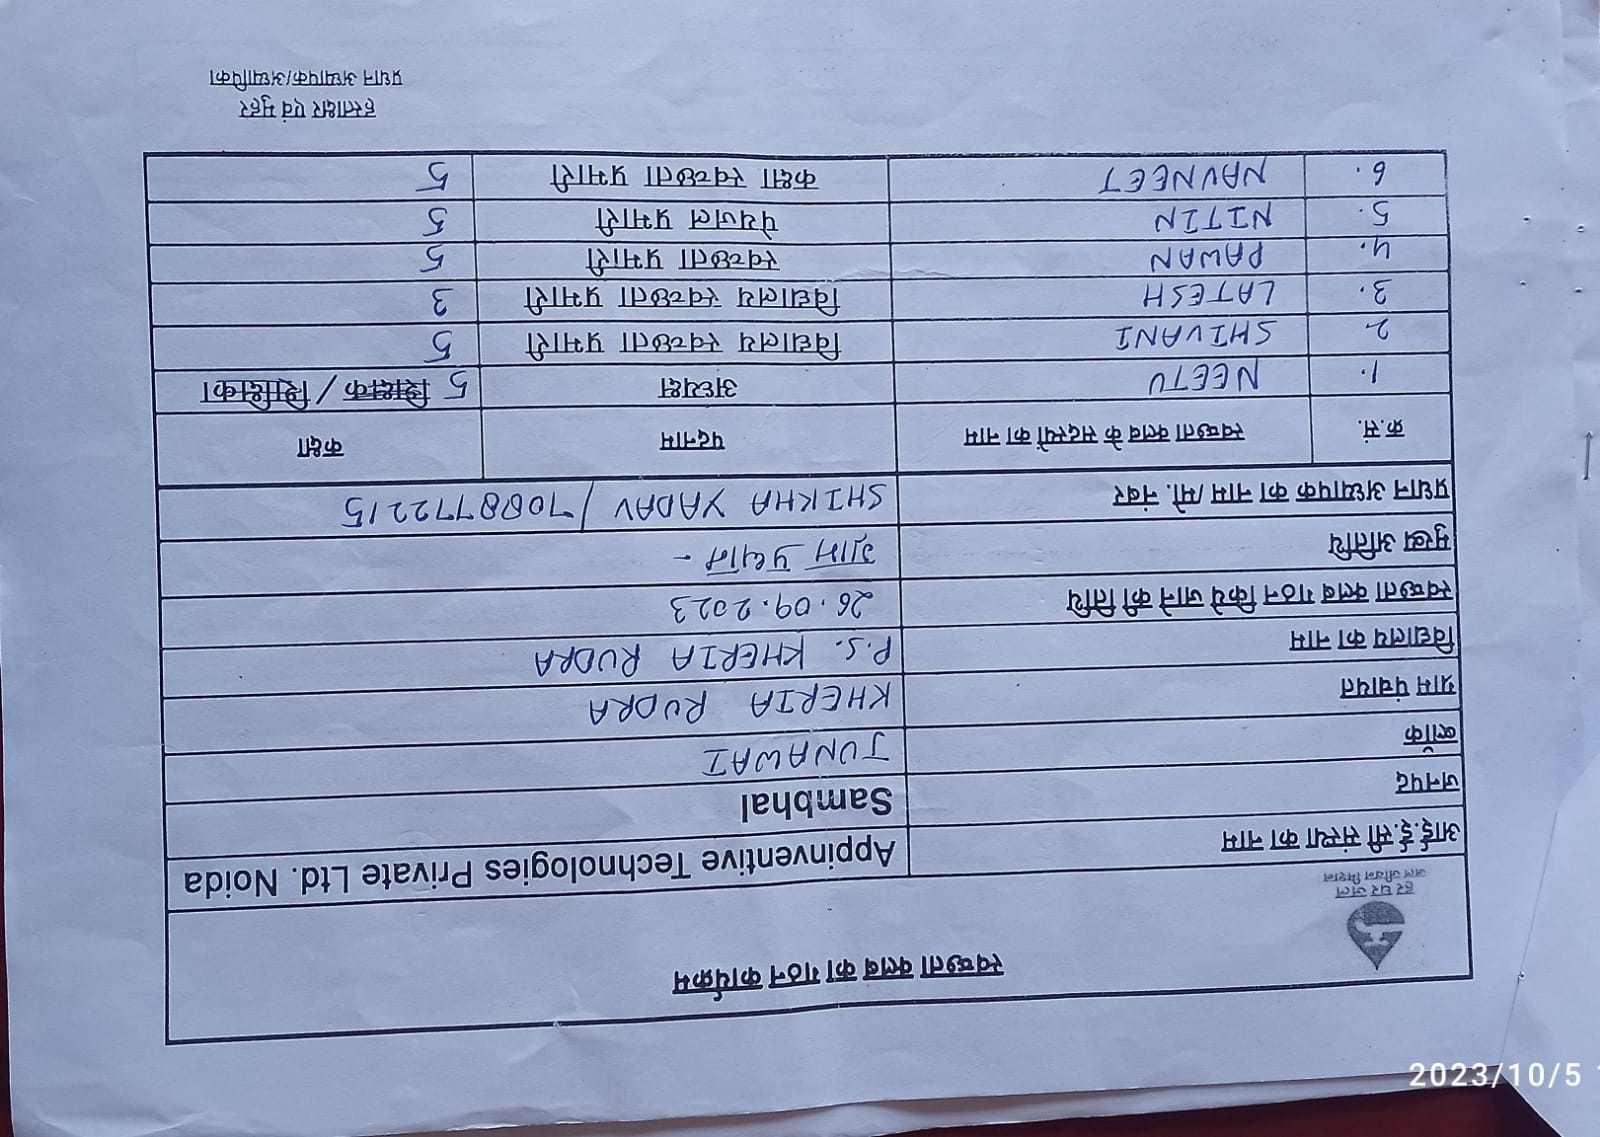 स्वच्छता क्लब का गठन कार्यक्रम
हर घर जल
जल जीवन मिशन
आई.ई.सी संस्था का नाम Appinventive Technologies Private Ltd. Noida
जनपद Sambhal
ब्लॉक JUNAWAI
ग्राम पंचायत KHERIA RUDRA
विद्यालय का नाम P.S. KHERIA RUDRA
स्वच्छता क्लब गठन किये जाने की तिथि 26.09.2023
मुख्य अतिथि ग्राम प्रधान -
प्रधान अध्यापक का नाम /मो. नंबर SHIKHA YADAV / 7088772215
क्र.सं. स्वच्छता क्लब के सदस्यों का नाम पदनाम कक्षा
1. NEETU अध्यक्ष 5 शिक्षक / शिक्षिका
2. SHIVANI विद्यालय स्वच्छता प्रभारी 5
3. LATESH विद्यालय स्वच्छता प्रभारी 3
4. PAWAN स्वच्छता प्रभारी 5
5. NITIN पेयजल प्रभारी 5
6. NAVNEET कक्षा स्वच्छता प्रभारी 5
हस्ताक्षर एवं मुहर
प्रधान अध्यापक/अध्यापिका
2023/10/5